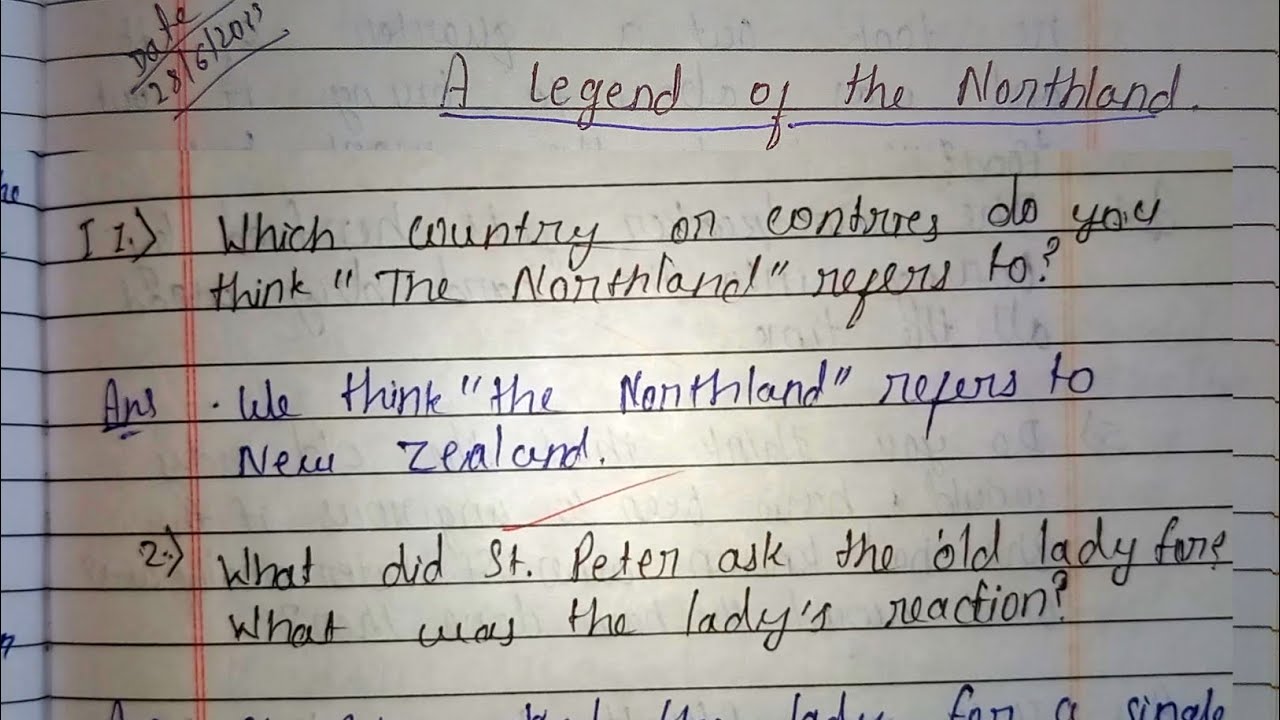 Date
28/6/2023
A Legend of the Northland.
I 1.) Which country or contries do you
think "The Northland" refers to?
Ans . We think "the Northland" refers to
New Zealand.
2.) What did St. Peter ask the old lady for?
What was the lady's reaction?
the lady for a single